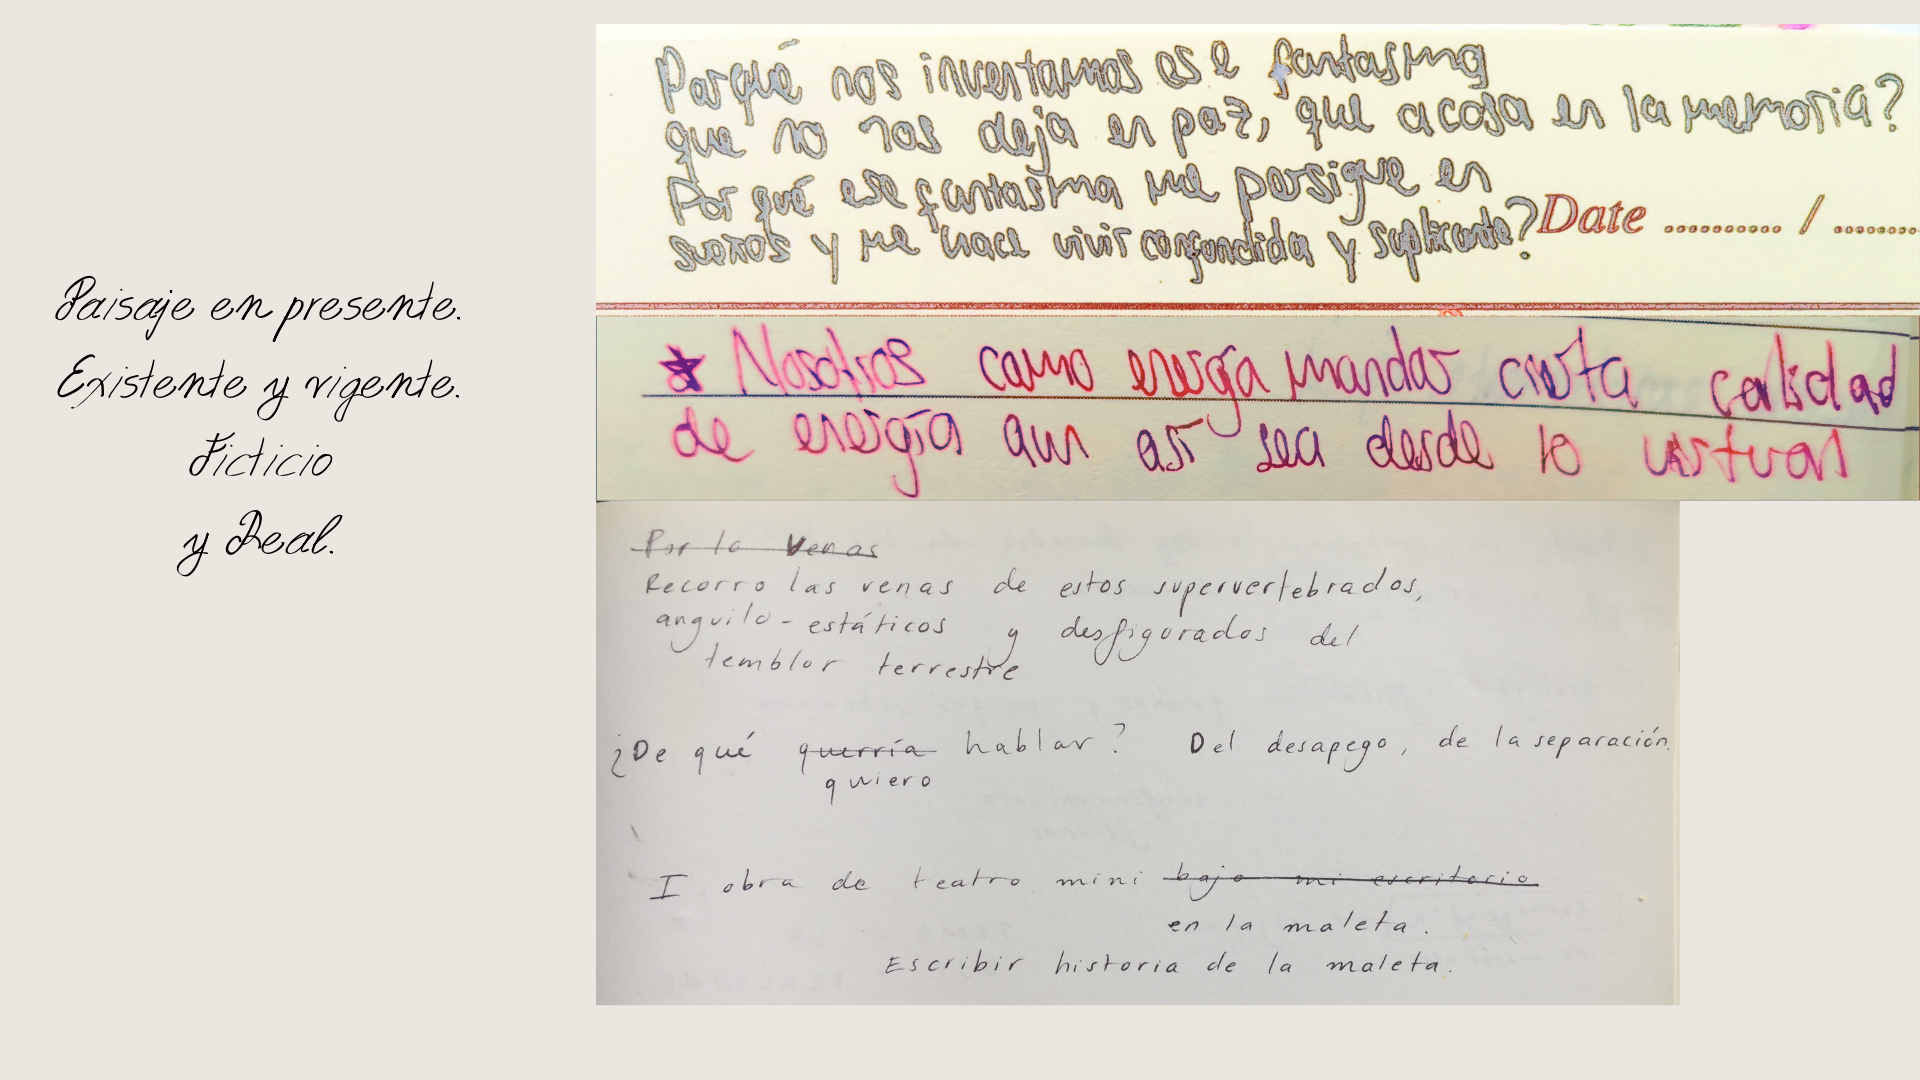 Paisaje en presente.
Existente y vigente.
Ficticio
y Real.
Porqué nos inventamos ese fantasma
que no nos deja en paz, que acosa en la memoria?
Por qué ese fantasma me persigue en
sueños y me hace vivir confundida y suplicante?
Date .......... / ........
* Nosotros como energía mandar cierta calidad
de energía aun así sea desde lo virtual
Por la Venas
Recorro las venas de estos supervertebrados,
anguilo-estáticos y desfigurados del
temblor terrestre
¿De qué querría hablar? Del desapego, de la separación.
quiero
I obra de teatro mini bajo mi escritorio
en la maleta.
Escribir historia de la maleta.